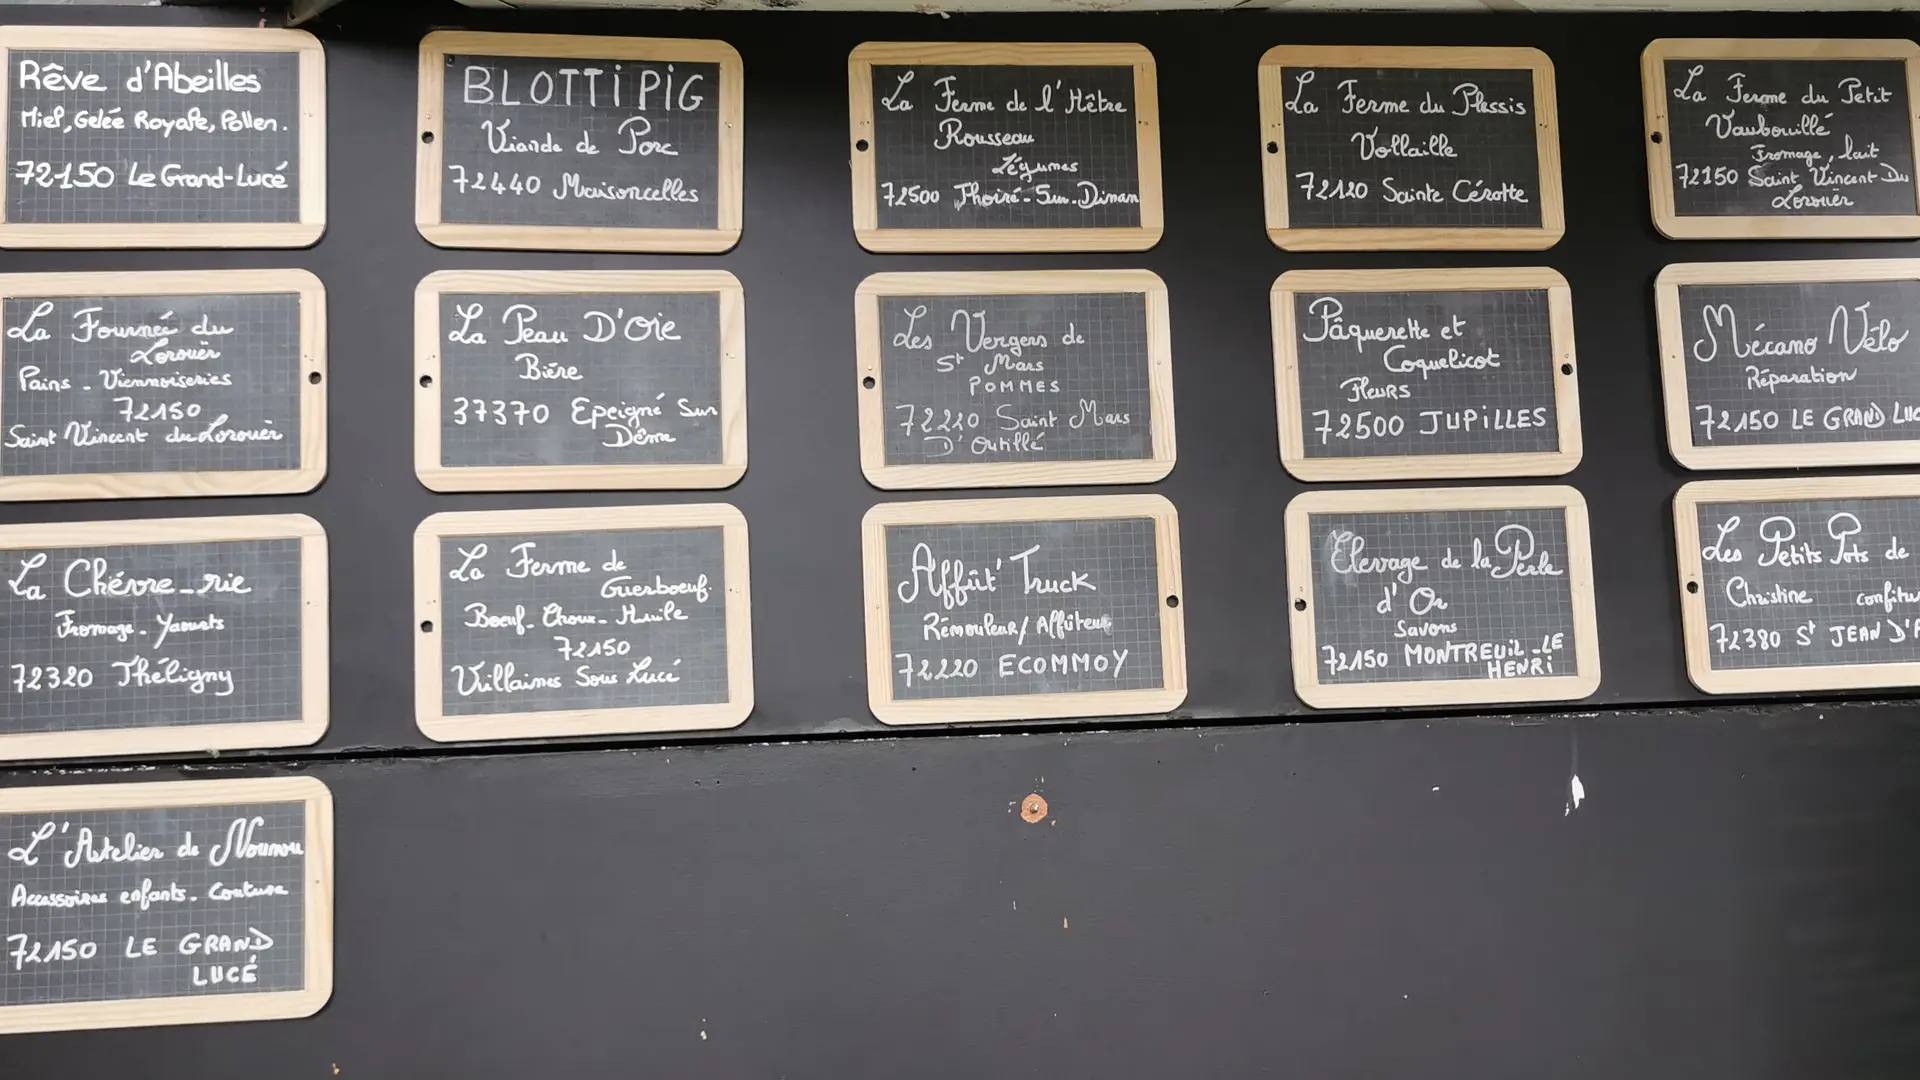 Rêve d'Abeilles
Miel, Gelée Royale, Pollen.
72150 Le Grand-Lucé
BLOTTiPiG
Viande de Porc
72440 Maisoncelles
La Ferme de l'Hêtre
Rousseau
Légumes
72500 Thoiré-Sur-Dinan
La Ferme du Plessis
Vollaille
72120 Sainte Cérotte
La Ferme du Petit
Vaubouillé
Fromage, lait
72150 Saint Vincent Du
Lorouër
La Fournée du
Lorouër
Pains - Viennoiseries
72150
Saint Vincent du Lorouër
La Peau D'Oie
Bière
37370 Epeigné Sur
Dême
Les Vergers de
St Mars
POMMES
72220 Saint Mars
D'Outillé
Pâquerette et
Coquelicot
Fleurs
72500 JUPiLLES
Mécano Vélo
Réparation
72150 LE GRAND LUC
La Chévre-rie
Fromage - Yaourts
72320 Théligny
La Ferme de
Guerboeuf.
Boeuf - Choux - Huile
72150
Villaines Sous Lucé
Affût' Truck
Rémouleur/Affûteur
72220 ECOMMOY
Elevage de la Perle
d'Or
Savons
72150 MONTREUiL-LE
HENRi
Les Petits Pots de
Christine confitu
72380 St JEAN D'A
L'Atelier de Nounou
Accessoires enfants - Couture
72150 LE GRAND
LUCÉ